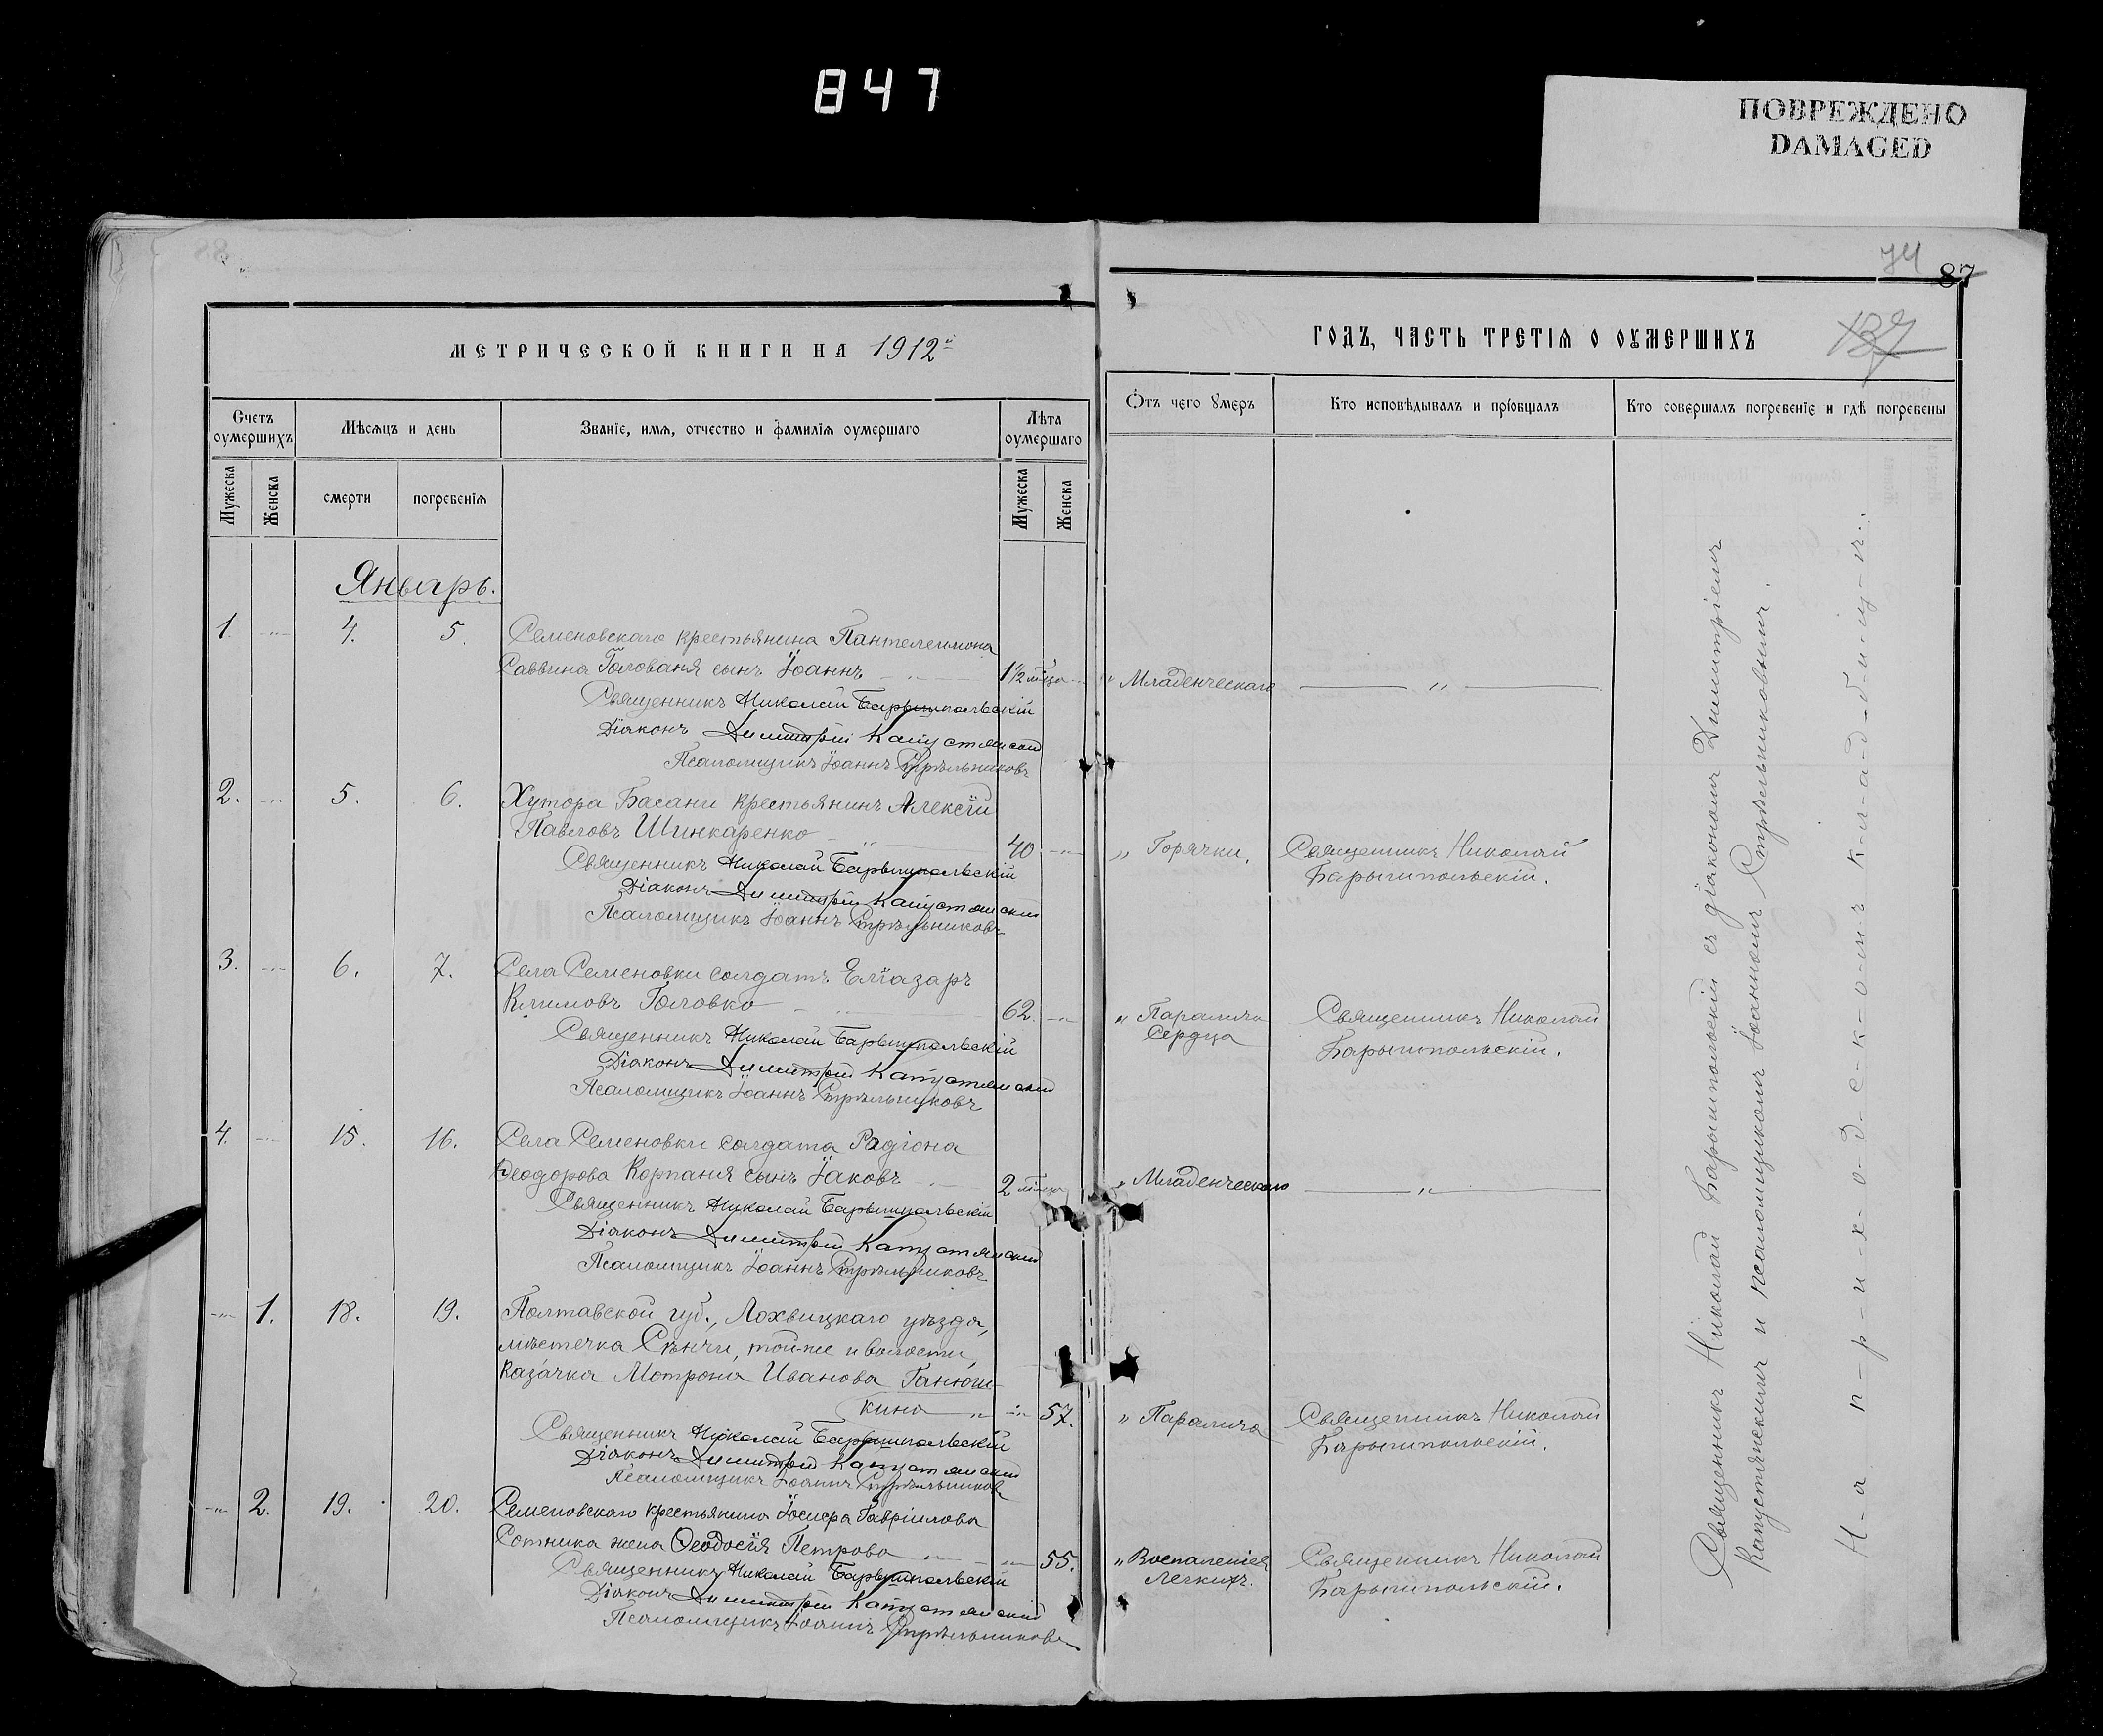 847
ПОВРЕЖДЕНО
DAMAGED
74
87
МЕТРИЧЕСКОЙ КНИГИ НА 1912й
ГОДЪ, ЧАСТЬ ТРЕТІЯ О ОУМЕРШИХЪ
137
Счетъ оумершихъ
Мѣсяцъ и день
Званіе, имя, отчество и фамилія оумершаго
Лѣта оумершаго
Отъ чего умеръ
Кто исповѣдывалъ и пріобщалъ
Кто совершалъ погребеніе и гдѣ погребены
Мужеска
Женска
смерти
погребенія
Мужеска
Женска
Январь.
1. 4. 5. Семеновскаго крестьянина Пантелеимона
Саввина Голованя сынъ Іоаннъ 1½ мѣсяца „ Младенческаго
Священникъ Николай Барышпольскій
Діаконъ Димитрій Капустянскій
Псаломщикъ Іоаннъ Стрѣльниковъ
2. 5. 6. Хутора Басани крестьянинъ Алексій
Павловъ Шинкаренко 40 „ Горячки. Священникъ Николай
Барышпольскій.
Священникъ Николай Барышпольскій
Діаконъ Димитрій Капустянскій
Псаломщикъ Іоаннъ Стрѣльниковъ
3. 6. 7. Села Семеновки солдатъ Еліазаръ
Климовъ Головко 62. „ Паралича Священникъ Николай
Сердца Барышпольскій.
Священникъ Николай Барышпольскій
Діаконъ Димитрій Капустянскій
Псаломщикъ Іоаннъ Стрѣльниковъ
4. 15. 16. Села Семеновки солдата Родіона
Ѳеодорова Корпаня сынъ Іаковъ 2 мѣсяца „ Младенческаго
Священникъ Николай Барышпольскій
Діаконъ Димитрій Капустянскій
Псаломщикъ Іоаннъ Стрѣльниковъ
1. 18. 19. Полтавской губ., Лохвицкаго уѣзда,
мѣстечка Сѣнчи, той-же и волости,
казачка Мотрона Иванова Ганюш-
кина 57. „ Паралича Священникъ Николай
Барышпольскій.
Священникъ Николай Барышпольскій
Діаконъ Димитрій Капустянскій
Псаломщикъ Іоаннъ Стрѣльниковъ
2. 19. 20. Семеновскаго крестьянина Іосифа Гавріилова
Сотника жена Ѳеодосія Петрова 55. „ Воспаленія Священникъ Николай
Легкихъ. Барышпольскій.
Священникъ Николай Барышпольскій
Діаконъ Димитрій Капустянскій
Псаломщикъ Іоаннъ Стрѣльниковъ
Священникъ Николай Барышпольскій съ діакономъ Димитріемъ
Капустянскимъ и псаломщикомъ Іоанномъ Стрѣльниковымъ.
Н-а п-р-и-х-о-д-с-к-о-м-ъ к-л-а-д-б-и-щ-ѣ.